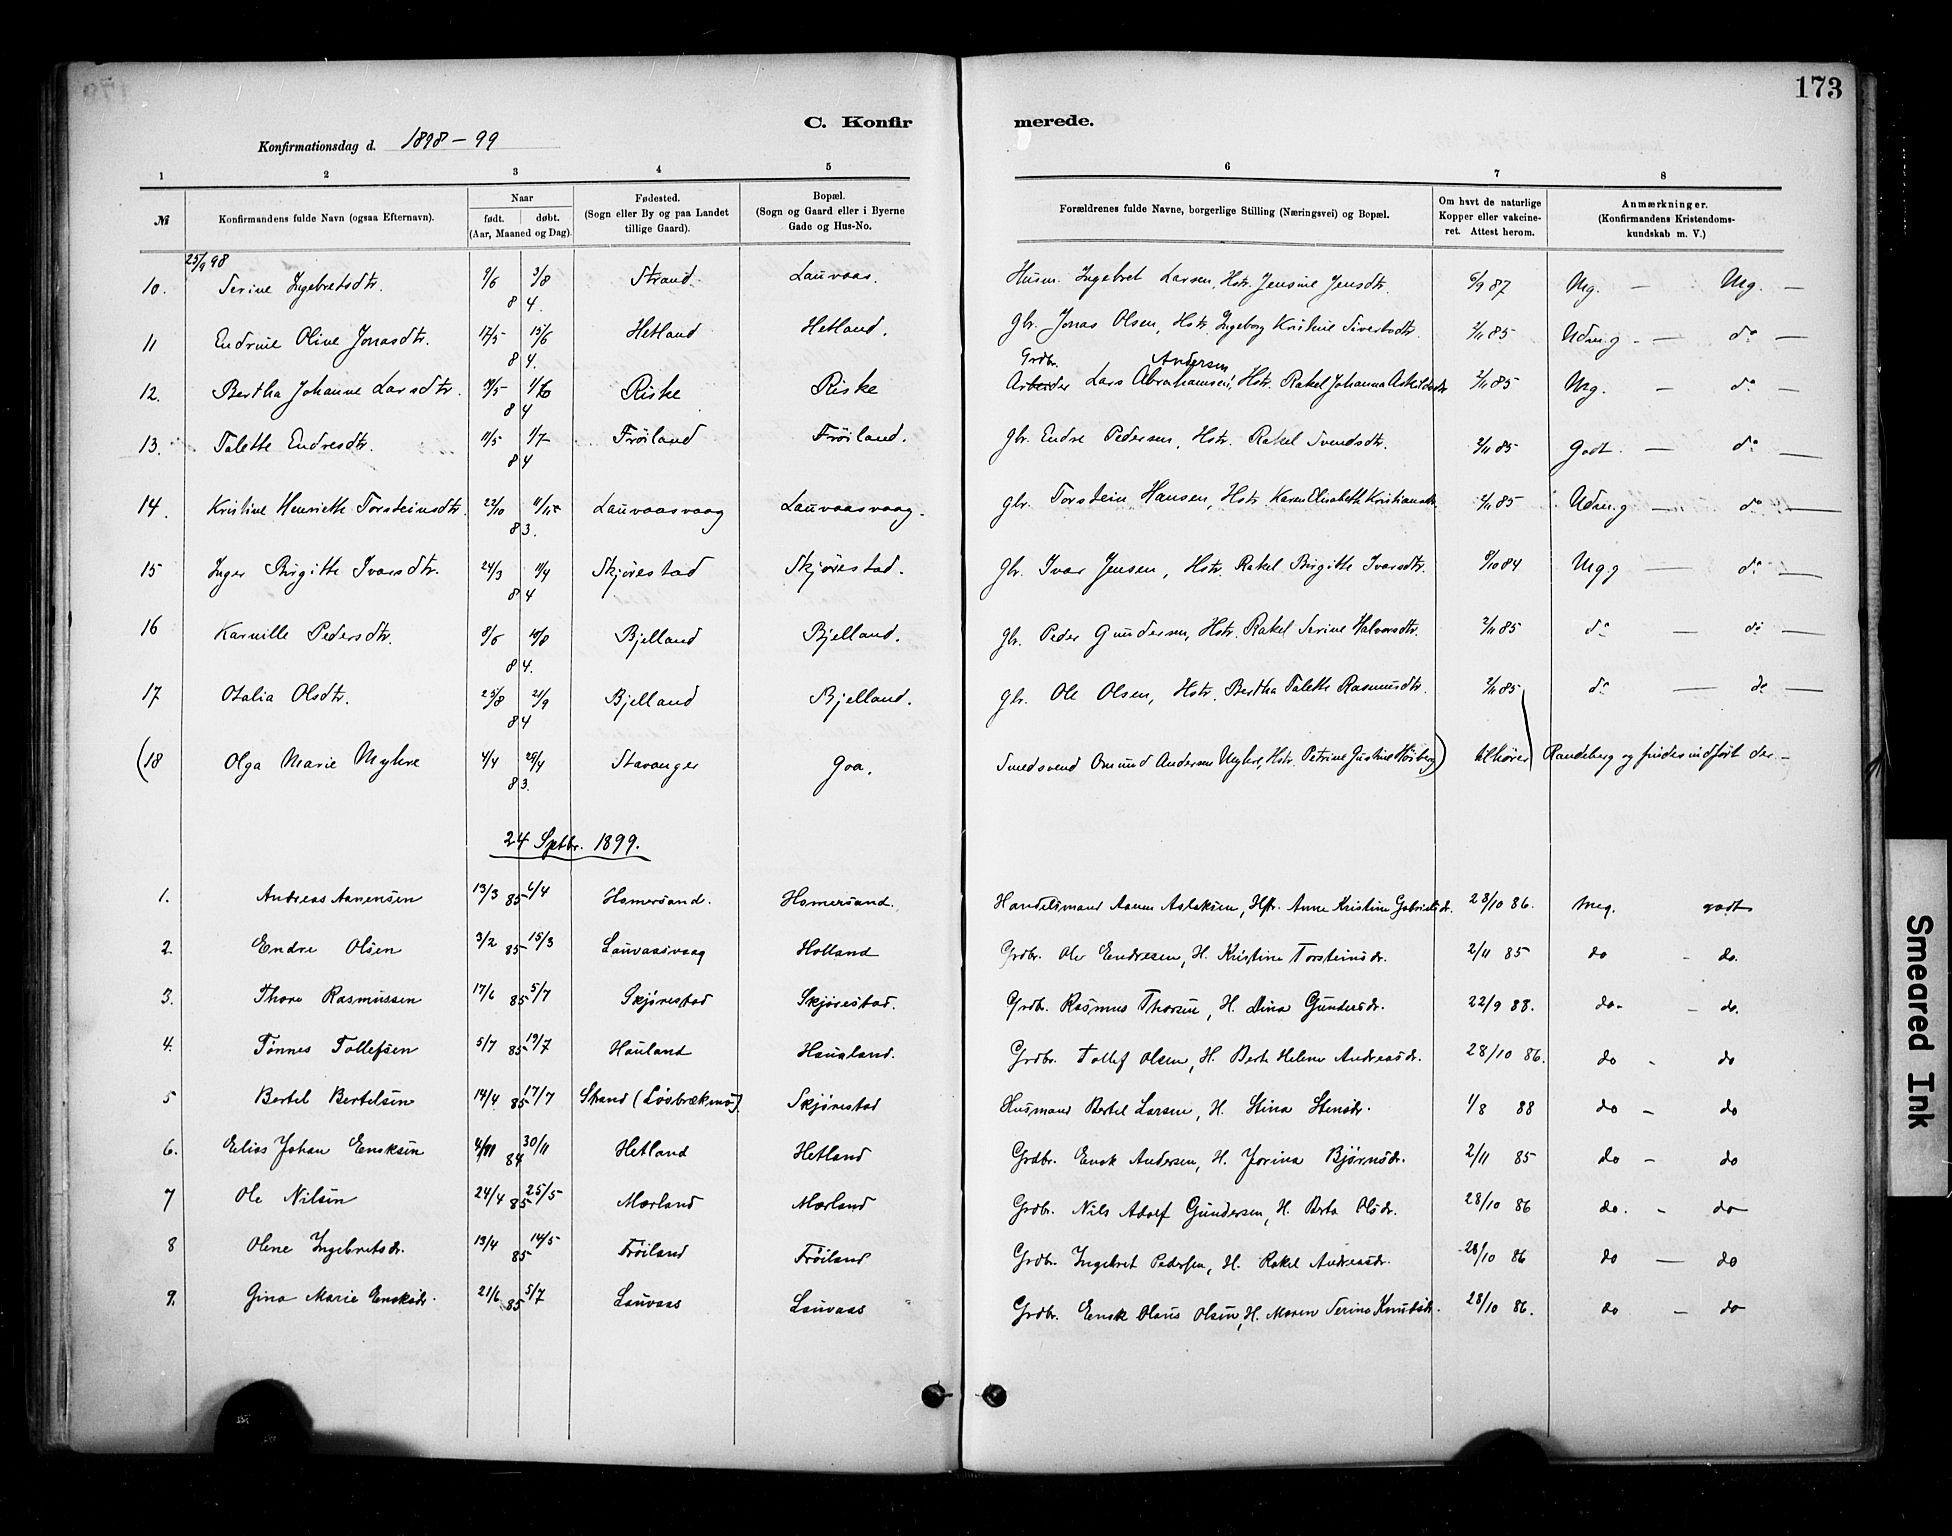 173
C. Konfirmerede.
Konfirmationsdag d. 1898-99
1 2 3 4 5 6 7 8
№ Konfirmandens fulde Navn (ogsaa Efternavn). Naar født. døbt. (Aar, Maaned og Dag). Fødested. (Sogn eller By og paa Landet tillige Gaard). Bopæl. (Sogn og Gaard eller i Byerne Gade og Hus-No. Forældrenes fulde Navne, borgerlige Stilling (Næringsvei) og Bopæl. Om havt de naturlige Kopper eller vakcineret. Attest herom. Anmærkninger. (Konfirmandens Kristendomskundskab m. V.)
25/9 98
10. Serine Ingebretsdtr. 9/6 3/8 84. Strand. Lauvaas. Husm. Ingebret Larsen, Hstr. Jensine Jensdtr. 6/9 87 Mg. — Mg. —
11 Endrine Olive Jonasdtr. 17/5 15/6 84. Hetland Hetland. Gbr. Jonas Olsen, Hstr. Ingeborg Kristine Sivertsdtr. 2/11 85 Udm.g — do —
12. Bertha Johanne Larsdtr. 84 Riske Riske Grdbr. Arbeider Lars Abrahamsen Andersen, Hstr. Rakel Johanna Askildsdtr 2/11 85 Mg. — do —
13. Talette Endresdtr. 11/5 1/7 84 Frøiland Frøiland. Gbr. Endre Pedersen, Hstr. Rakel Svendsdtr. 2/11 85 Godt. — do —
14. Kristine Henriette Torsteinsdtr. 22/10 11/11 83. Lauvaasvaag Lauvaasvaag. Gbr. Torstein Hansen, Hstr. Karen Elisabeth Kristiansdtr. 2/11 85 Udm.g — do —
15 Inger Birgitte Ivarsdtr. 24/3 11/4 84 Skjørestad Skjørestad. Gbr. Ivar Jensen, Hstr. Rakel Birgitte Ivarsdtr. 9/10 84 Mg.g — do —
16 Karnille Pedersdtr. 8/6 10/8 84. Bjelland Bjelland. Gbr. Peder Gundersen, Hstr. Rakel Serine Halvorsdtr. 2/11 85 do — do —
17 Otalia Olsdtr. 25/8 21/9 84 Bjelland Bjelland. Gbr. Ole Olsen, Hstr. Bertha Talette Rasmusdtr. 2/11 85 do — do —
(18 Olga Marie Myhre 4/4 29/4 83. Stavanger Goa. Smedsvend Omund Andersen Myhre, Hstr. Petrine Justine Høiberg) tilhører Randeberg og findes indført der —
24 Septbr. 1899.
1. Andreas Aanensen 13/3 85 6/4 Hamersand. Hamersand. Handelsmand Aanen Aslaksen, Hstr. Anne Kristine Gabrielsdr. 28/10 86. Meg. godt
2 Endre Olsen 3/2 85 15/3 Lauvaasvaag Holland Grdbr. Ole Endresen, H. Kristine Torsteinsdr. 2/11 85 do - do.
3. Thore Rasmussen 17/6 85 5/7 Skjørestad Skjørestad. Grdbr. Rasmus Thorsen, H. Dina Gundersdr. 22/9 88. do- - do.
4. Tønnes Tollefsen 5/7 85 19/7 Hauland Haugland. Grdbr. Tollef Olsen, H. Berte Helene Andreasdr. 28/10 86. do - do
5 Bertel Bertelsen 14/4 85 17/7 Strand (Løsbrækmo) Skjørestad Husmand Bertel Larsen, H. Stina Stensdr. 1/8 88 do - do
6. Elias Johan Enoksen 4/11 84 30/11 Hetland Hetland Grdbr. Enok Andersen, H. Jorina Bjørnsdr. 2/11 85 do - do
7 Ole Nilsen 24/4 85 25/5 Mærland Mærland Grdbr. Nils Adolf Gundersen, H. Berta Olsdr. 28/10 86 do. - do
8 Olene Ingebretsdr. 13/4 85 14/5 Frøiland Frøiland Grdbr. Ingebret Pedersen, H. Rakel Andreasdr. 28/10 86 do — do
9. Gina Marie Enoksdr. 21/6 85 5/7 Lauvaas Lauvaas Grdbr. Enok Olaus Olsen, H. Maren Serina Knutsdr. 28/10 86. do - do
Smeared Ink